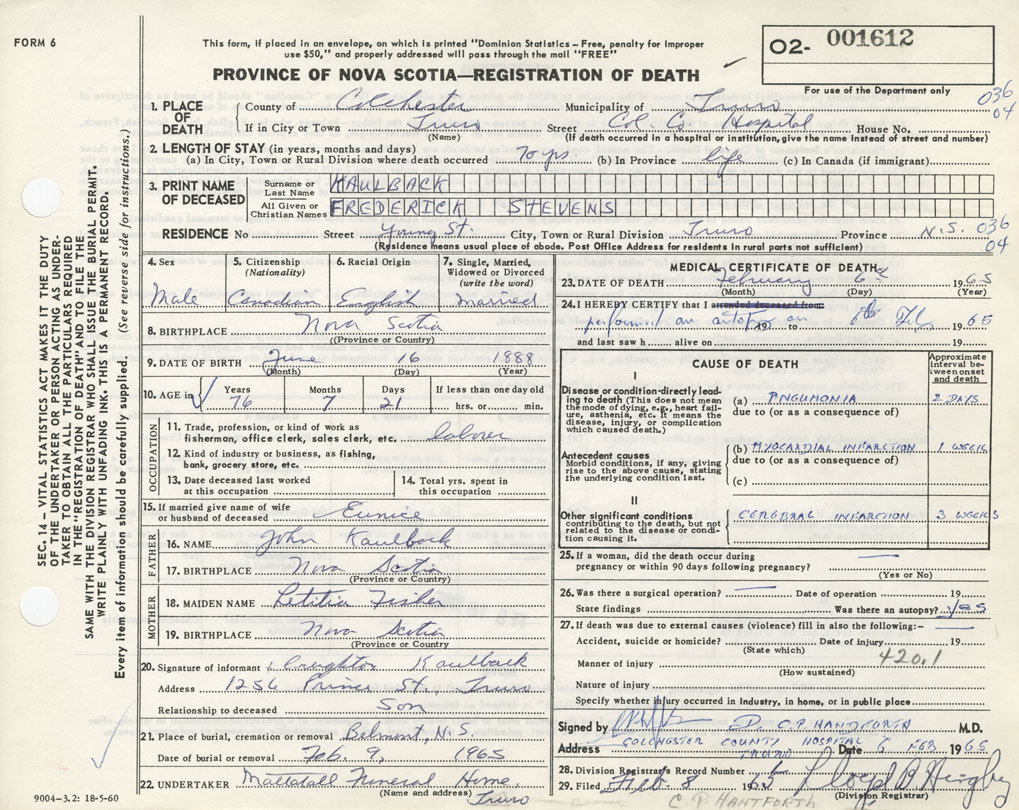 FORM 6
This form, if placed in an envelope, on which is printed "Dominion Statistics – Free, penalty for improper
use $50," and properly addressed will pass through the mail "FREE"
O2- 001612
For use of the Department only
PROVINCE OF NOVA SCOTIA—REGISTRATION OF DEATH
036
04
1. PLACE OF DEATH
County of Colchester Municipality of Truro
If in City or Town Truro Street Col. Co. Hospital House No.
(Name) (If death occurred in a hospital or institution, give the name instead of street and number)
2. LENGTH OF STAY (in years, months and days)
(a) In City, Town or Rural Division where death occurred 70 yrs. (b) In Province life (c) In Canada (if immigrant)
3. PRINT NAME OF DECEASED
Surname or Last Name KAULBACK
All Given or Christian Names FREDERICK STEVENS
RESIDENCE No Street Young St. City, Town or Rural Division Truro Province N.S. 036
04
(Residence means usual place of abode. Post Office Address for residents in rural parts not sufficient)
4. Sex Male
5. Citizenship (Nationality) Canadian
6. Racial Origin English
7. Single, Married, Widowed or Divorced (write the word) Married
8. BIRTHPLACE Nova Scotia
((Province or Country)
9. DATE OF BIRTH June 16 1888
(Month) (Day) (Year)
10. AGE in Years 76 Months 7 Days 21 If less than one day old hrs. or min.
OCCUPATION
11. Trade, profession, or kind of work as
fisherman, office clerk, sales clerk, etc. laborer
12. Kind of industry or business, as fishing,
bank, grocery store, etc.
13. Date deceased last worked
at this occupation
14. Total yrs. spent in
this occupation
15. If married give name of wife
or husband of deceased Eunice
FATHER
16. NAME John Kaulback
17. BIRTHPLACE Nova Scotia
(Province or Country)
MOTHER
18. MAIDEN NAME Letitia Fisher
19. BIRTHPLACE Nova Scotia
(Province or Country)
20. Signature of informant Creighton Kaulback
Address 1256 Prince St. Truro
Relationship to deceased Son
21. Place of burial, cremation or removal Belmont, N.S.
Date of burial or removal Feb. 9, 1965
22. UNDERTAKER Mattatall Funeral Home,
(Name and address) Truro
MEDICAL CERTIFICATE OF DEATH
23. DATE OF DEATH February 6 1965
(Month) (Day) (Year)
24. I HEREBY CERTIFY that I attended deceased from:
performed an autopsy 19 to on 6th Feb 1965
and last saw h alive on 19
CAUSE OF DEATH
Approximate interval between onset and death
I
Disease or condition directly leading to death (This does not mean the mode of dying, e.g., heart failure, asthenia, etc. It means the disease, injury, or complication which caused death.)
(a) PNEUMONIA 2 DAYS
due to (or as a consequence of)
Antecedent causes
Morbid conditions, if any, giving rise to the above cause, stating the underlying condition last.
(b) MYOCARDIAL INFARCTION 1 WEEK
due to (or as a consequence of)
(c)
II
Other significant conditions
contributing to the death, but not related to the disease or condition causing it.
CEREBRAL INFARCTION 3 WEEKS
25. If a woman, did the death occur during
pregnancy or within 90 days following pregnancy?
(Yes or No)
26. Was there a surgical operation? Date of operation 19
State findings Was there an autopsy? yes
27. If death was due to external causes (violence) fill in also the following:–
Accident, suicide or homicide? Date of injury 19
(State which) 420.1
Manner of injury
(How sustained)
Nature of injury
Specify whether injury occurred in industry, in home, or in public place
Signed by Dr. C.P. HANDFORTH M.D.
Address COLCHESTER COUNTY HOSPITAL Date 6 FEB 1965
TRURO
28. Division Registrar's Record Number
29. Filed Feb. 8 1965
(Division Registrar)
C. P. HANTFORTH
SEC. 14 – VITAL STATISTICS ACT MAKES IT THE DUTY
OF THE UNDERTAKER OR PERSON ACTING AS UNDER-
TAKER TO OBTAIN ALL THE PARTICULARS REQUIRED
IN THE "REGISTRATION OF DEATH" AND TO FILE THE
SAME WITH THE DIVISION REGISTRAR WHO SHALL ISSUE THE BURIAL PERMIT.
WRITE PLAINLY WITH UNFADING INK. THIS IS A PERMANENT RECORD.
Every item of information should be carefully supplied. (See reverse side for instructions.)
9004–3.2: 18-5-60